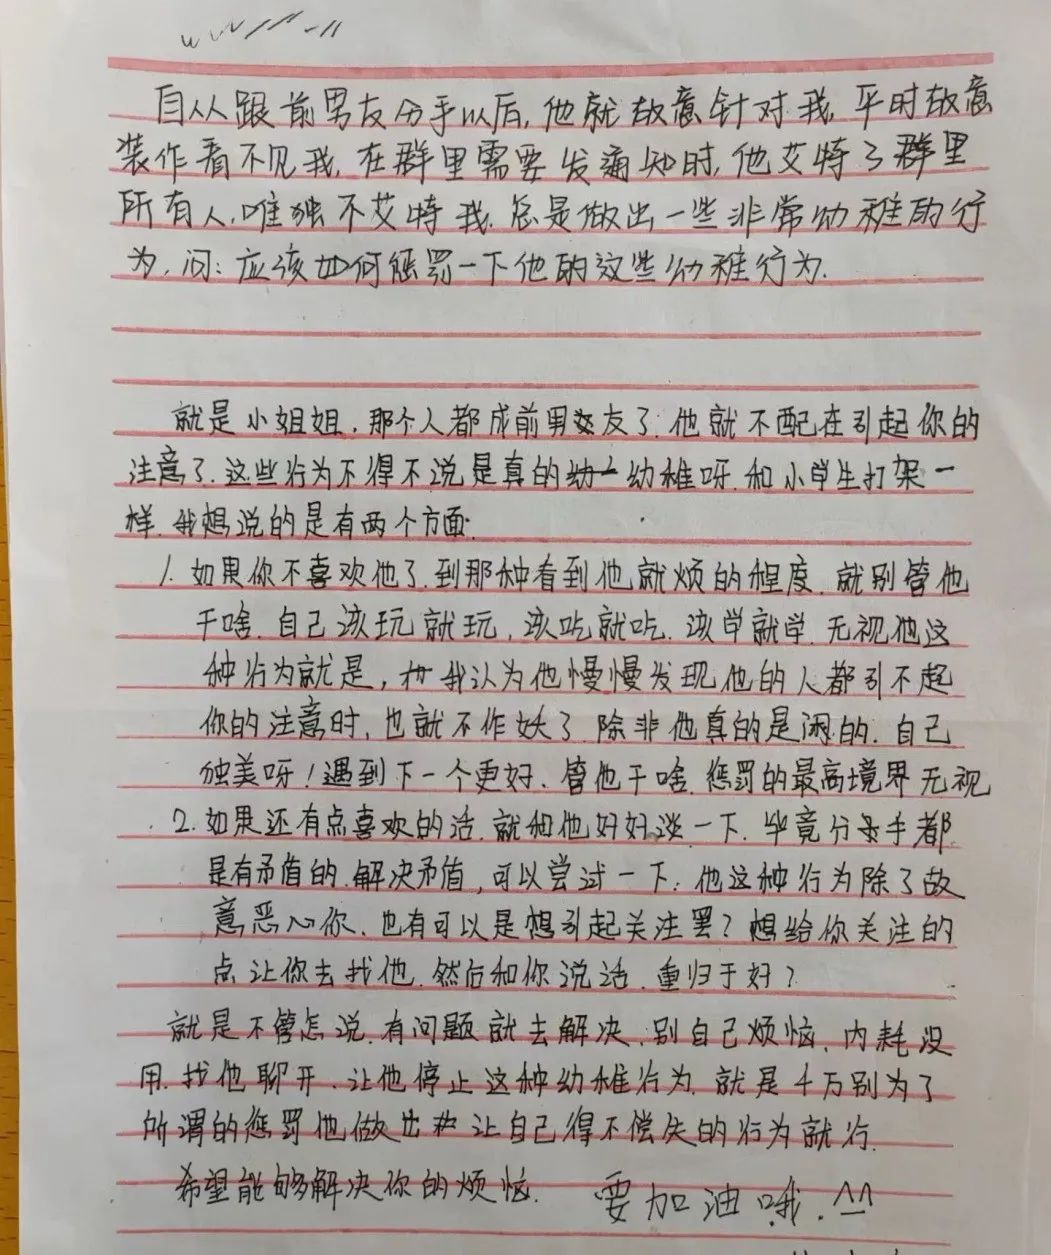 自从跟前男友分手以后,他就故意针对我,平时故意
装作看不见我,在群里需要发通知时,他艾特了群里
所有人,唯独不艾特我.总是做出一些非常幼稚的行
为,问:应该如何惩罚一下他的这些幼稚行为.
就是小姐姐,那个人都成前男友了.他就不配在引起你的
注意了.这些行为不得不说是真的幼稚呀.和小学生打架一
样.我想说的是有两个方面.
1.如果你不喜欢他了.到那种看到他就烦的程度.就别管他
干啥.自己该玩就玩,该吃就吃.该学就学.无视他这
种行为就是,我认为他慢慢发现他的人都引不起
你的注意时,也就不作妖了.除非他真的是闲的.自己
独美呀!遇到下一个更好.管他干啥.惩罚的最高境界无视
2.如果还有点喜欢的话.就和他好好谈一下.毕竟分手都
是有矛值的.解决矛值,可以尝试一下.他这种行为除了故
意恶心你.也有可以是想引起关注罢?想给你关注的
点让你去找他.然后和你说话.重归于好?
就是不管怎说.有问题就去解决.别自己烦恼.内耗没
用.找他聊开.让他停止这种幼稚行为.就是千万别为了
所谓的惩罚他做出让自己得不偿失的行为就行.
希望能够解决你的烦恼.要加油哦.^^